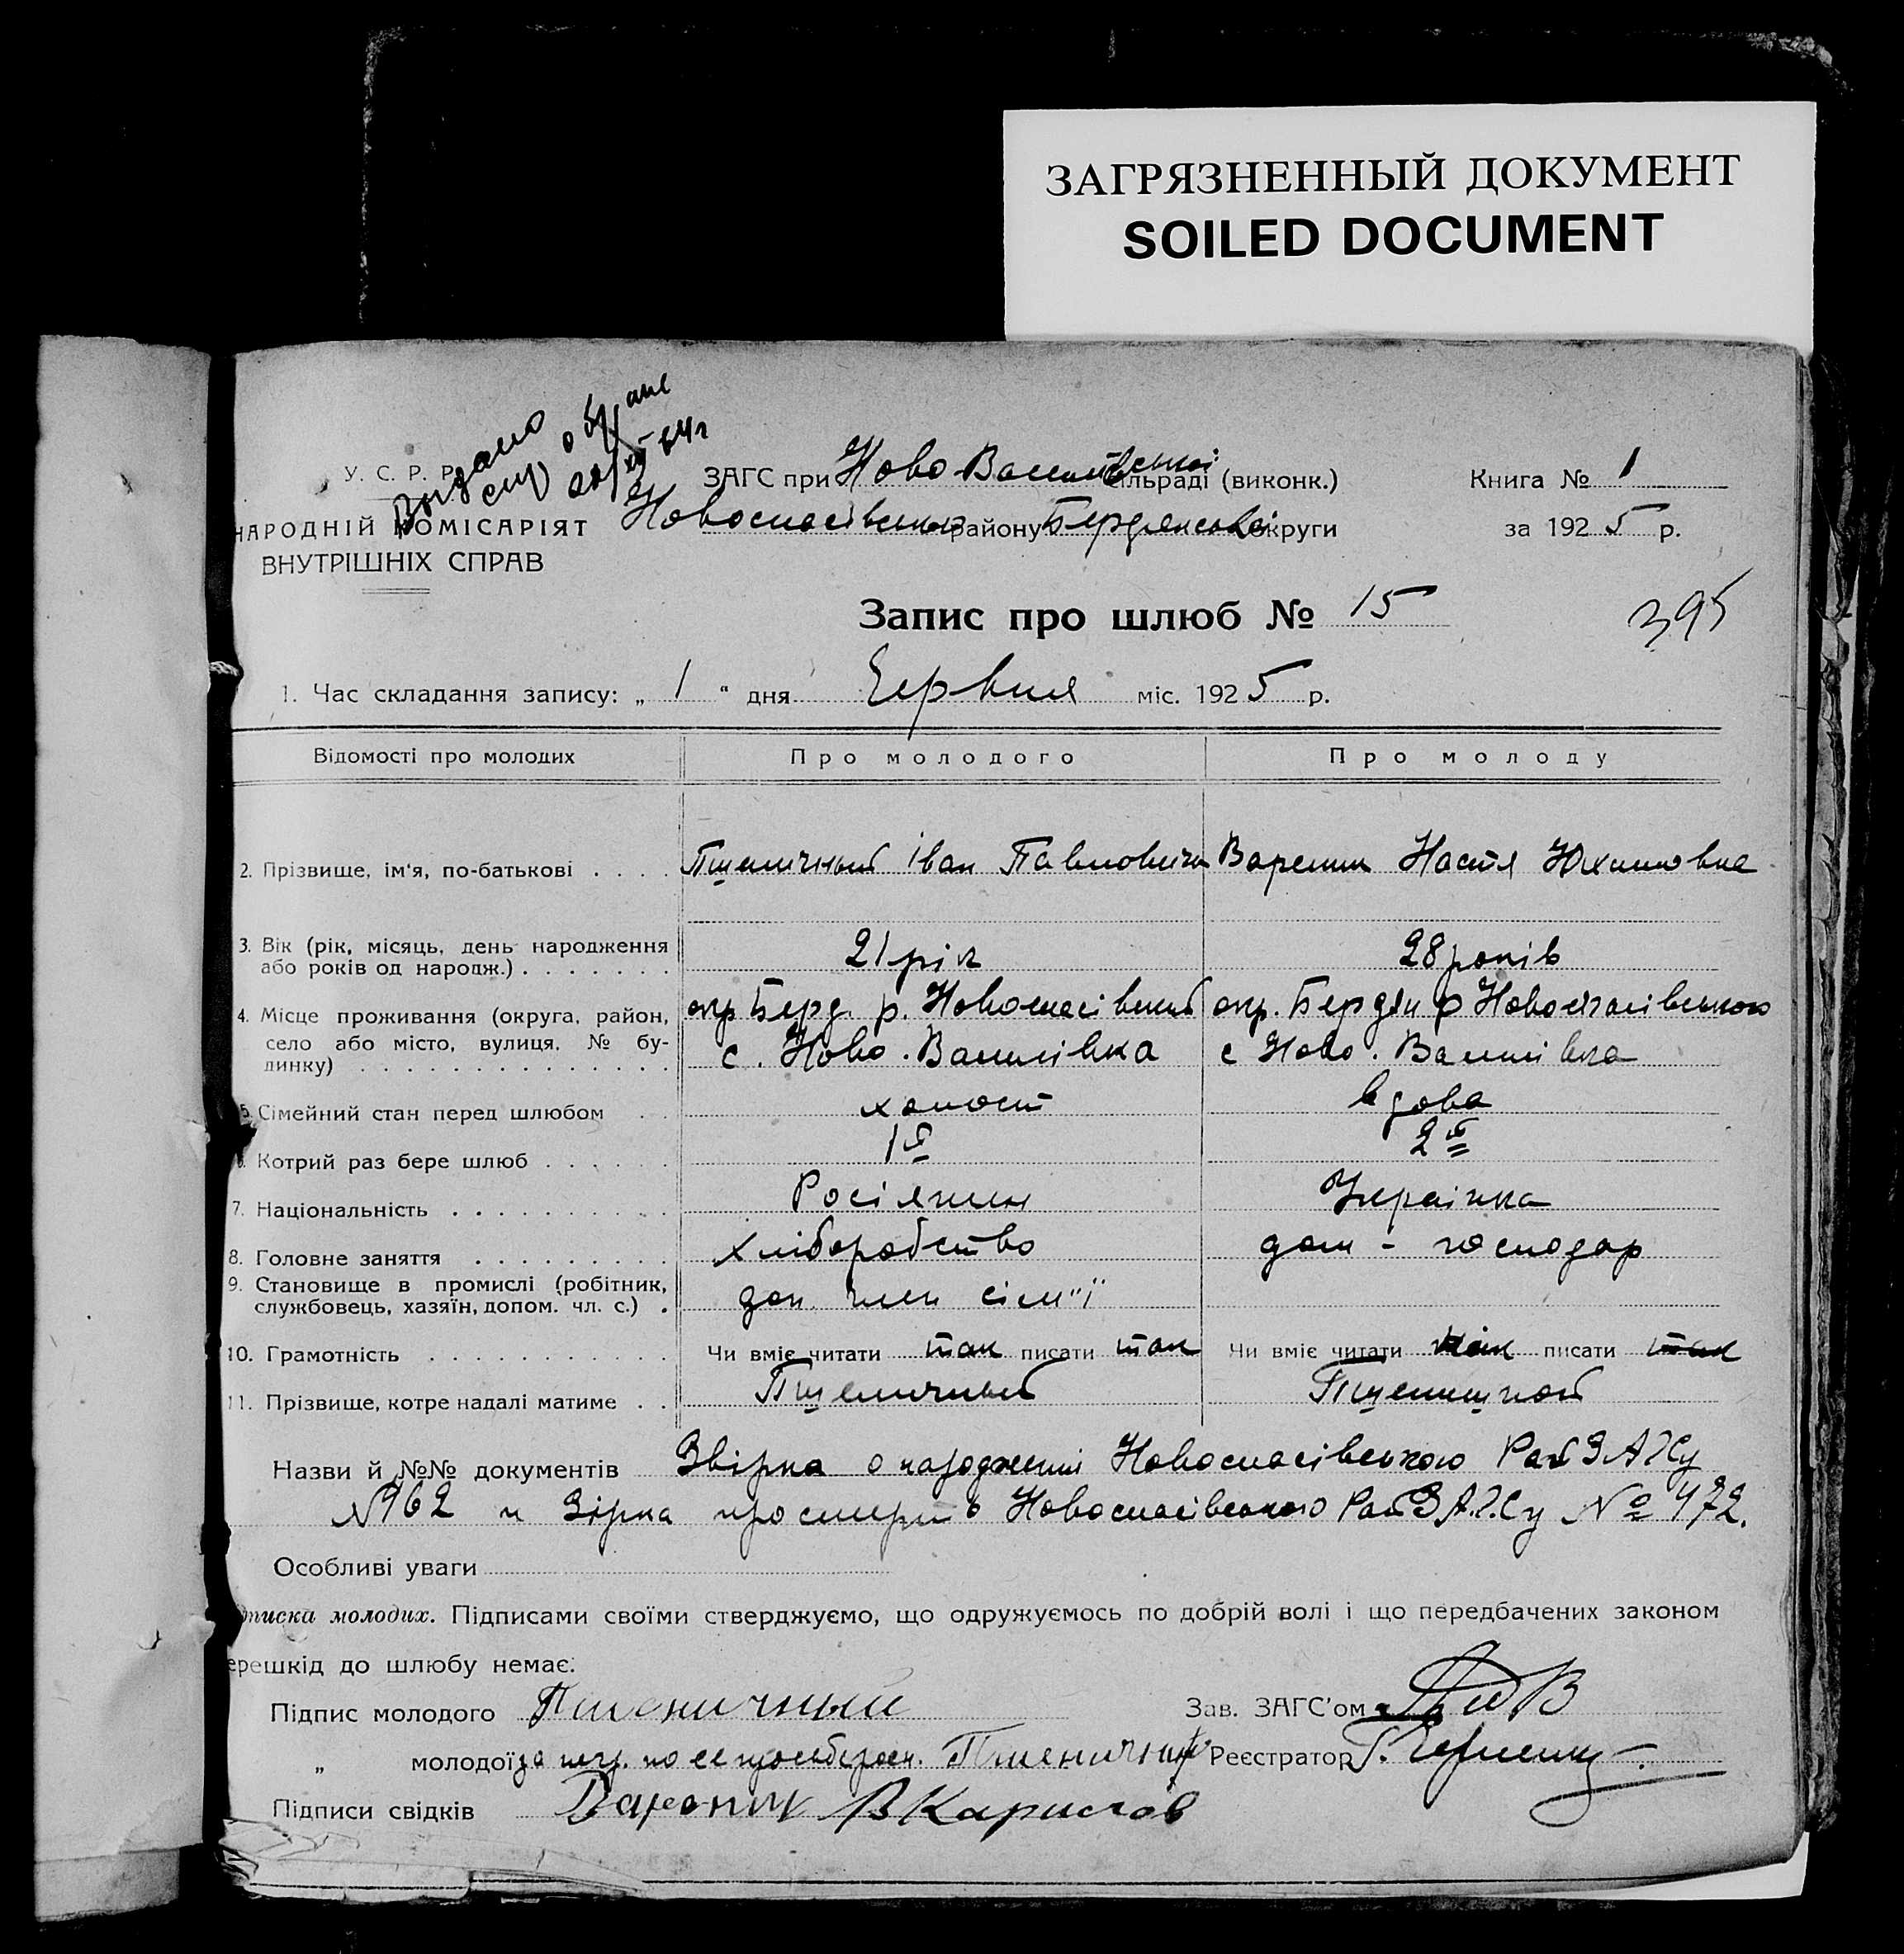 ЗАГРЯЗНЕННЫЙ ДОКУМЕНТ
SOILED DOCUMENT
Выдано
У. С. Р. Р.
ЗАГС при Ново Василівській сільраді (виконк.)
Книга № 1
НАРОДНІЙ КОМІСАРІЯТ
ВНУТРІШНІХ СПРАВ
Новоспасівського району Бердянської округи
за 1925 р.
Запис про шлюб № 15
395
1. Час складання запису: „ 1 “ дня Червня міс. 1925 р.
Відомості про молодих Про молодого Про молоду
2. Прізвище, ім'я, по-батькові . . . . Пшеничный Іван Павлович Вареник Настя Юхимовна
3. Вік (рік, місяць, день народження
або років од народж.) . . . . . . . 21 рік 28 років
4. Місце проживання (округа, район, окр Берд. р. Новоспасівский окр. Бердян р Новоспасівського
село або місто, вулиця, № бу- с. Ново. Василівка с Ново. Василівка
динку) . . . . . . . . . . . . . .
5. Сімейний стан перед шлюбом . . холост вдова
6. Котрий раз бере шлюб . . . . . . 1й 2й
7. Національність . . . . . . . . . . Росіянин Українка
8. Головне заняття . . . . . . . . . хліборобство дом - господар
9. Становище в промислі (робітник,
службовець, хазяїн, допом. чл. с.) . доп. член сім"ї
10. Грамотність . . . . . . . . . . . . Чи вміє читати так писати так Чи вміє читати писати так
11. Прізвище, котре надалі матиме . . Пшеничный
Назви й №№ документів Звірка о народженні Новоспасівського Рай ЗАГСу
№962 и Зірка про смерть Новоспасівського Рай ЗА.Г.Су № 472.
Особливі уваги
дписка молодих. Підписами своїми стверджуємо, що одружуємось по добрій волі і що передбачених законом
ерешкід до шлюбу немає:
Підпис молодого Пшеничный Зав. ЗАГС'ом
„ молодої за негр. по ее просьбе Реєстратор
Підписи свідків Вареник В